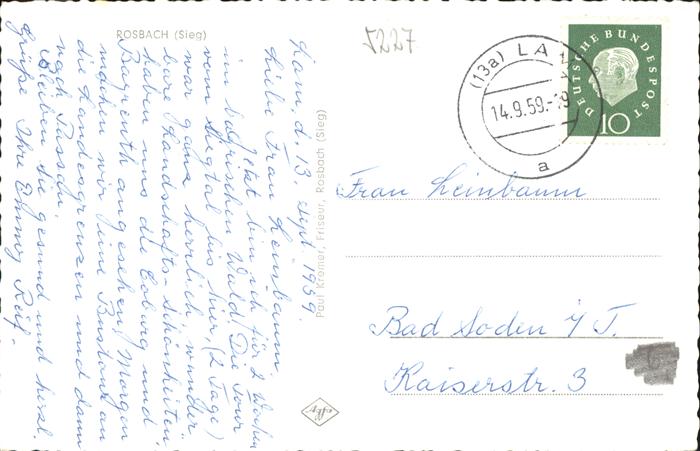 ROSBACH (Sieg)
5227
Lam d. 13. Sept. 1959.
Liebe Frau Leinbaum.
Jetzt bin ich für 2 Wochen
im bayrischen Wald. Die Tour
vom Siegtal bis hier, (2 Tage)
war ganz herrlich, wunder
bare Landschafts-Schönheiten
haben uns die Coburg und
Bayreuth angesehen, Morgen
machen wir eine Busfahrt an
die Landesgrenzen und dann
nach Passau.
Bleiben Sie gesund und herzl.
Grüße Ihre
Paul Kromer, Friseur, Rosbach (Sieg)
(13a) LAM
14.9.59.-19
a
DEUTSCHE BUNDESPOST
10
Frau Leinbaum
Bad Soden i/T.
Kaiserstr. 3